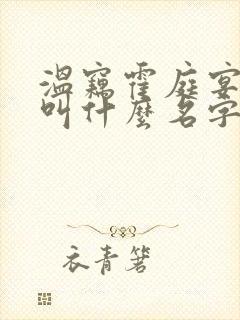 温窈霍庭宴
叫什麼名字
衣青箬